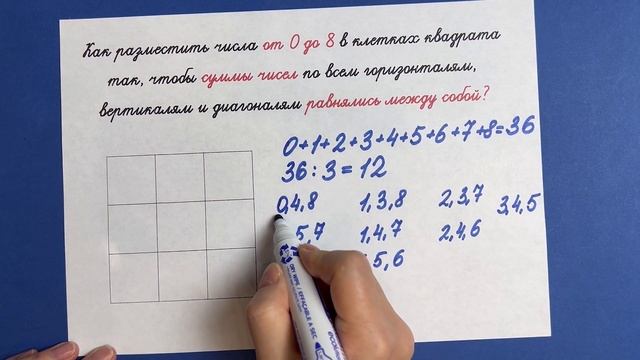 Как разместить числа от 0 до 8 в клетках квадрата
так, чтобы суммы чисел по всем горизонталям,
вертикалям и диагоналям равнялись между собой?
0+1+2+3+4+5+6+7+8=36
36:3=12
0,4,8 1,3,8 2,3,7 3,4,5
5,7 1,4,7 2,4,6
5,6